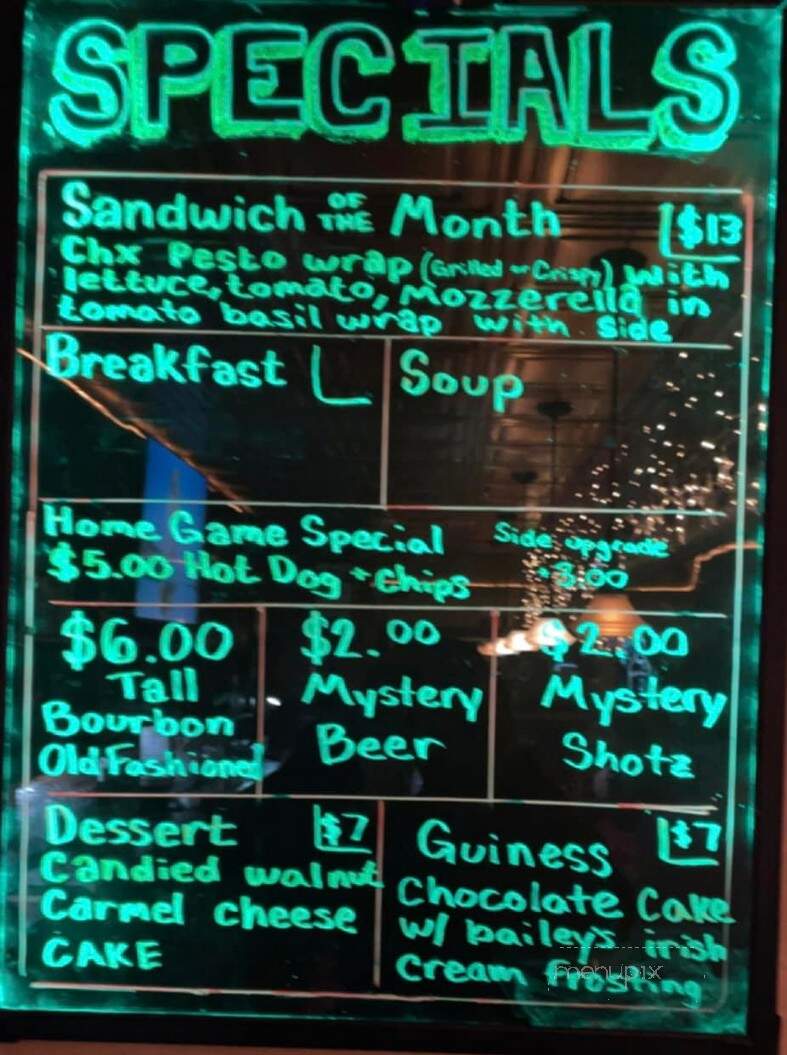 SPECIALS
Sandwich OF THE Month $13
Chx Pesto wrap (Grilled or Crispy) with
lettuce, tomato, Mozzerella in
tomato basil wrap with side
Breakfast
Soup
Home Game Special
$5.00 Hot Dog + Chips
Side upgrade
+3.00
$6.00
Tall
Bourbon
Old Fashioned
$2.00
Mystery
Beer
$2.00
Mystery
Shotz
Dessert $7
Candied walnut
Carmel cheese
CAKE
Guiness $7
Chocolate Cake
w/ bailey's irish
Cream frosting
menupix